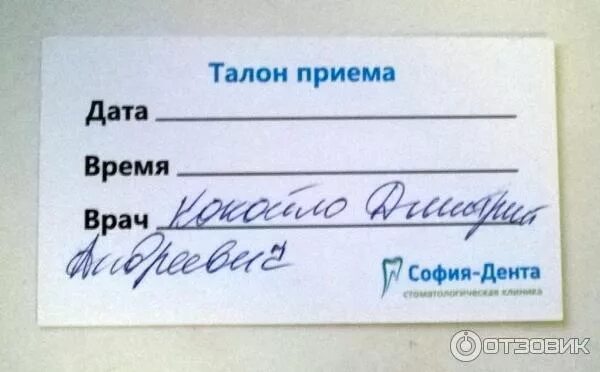 Талон приема
Дата
Время
Врач Кокойло Дмитрий
Андреевич
София-Дента
стоматологическая клиника
ОТЗОВИК